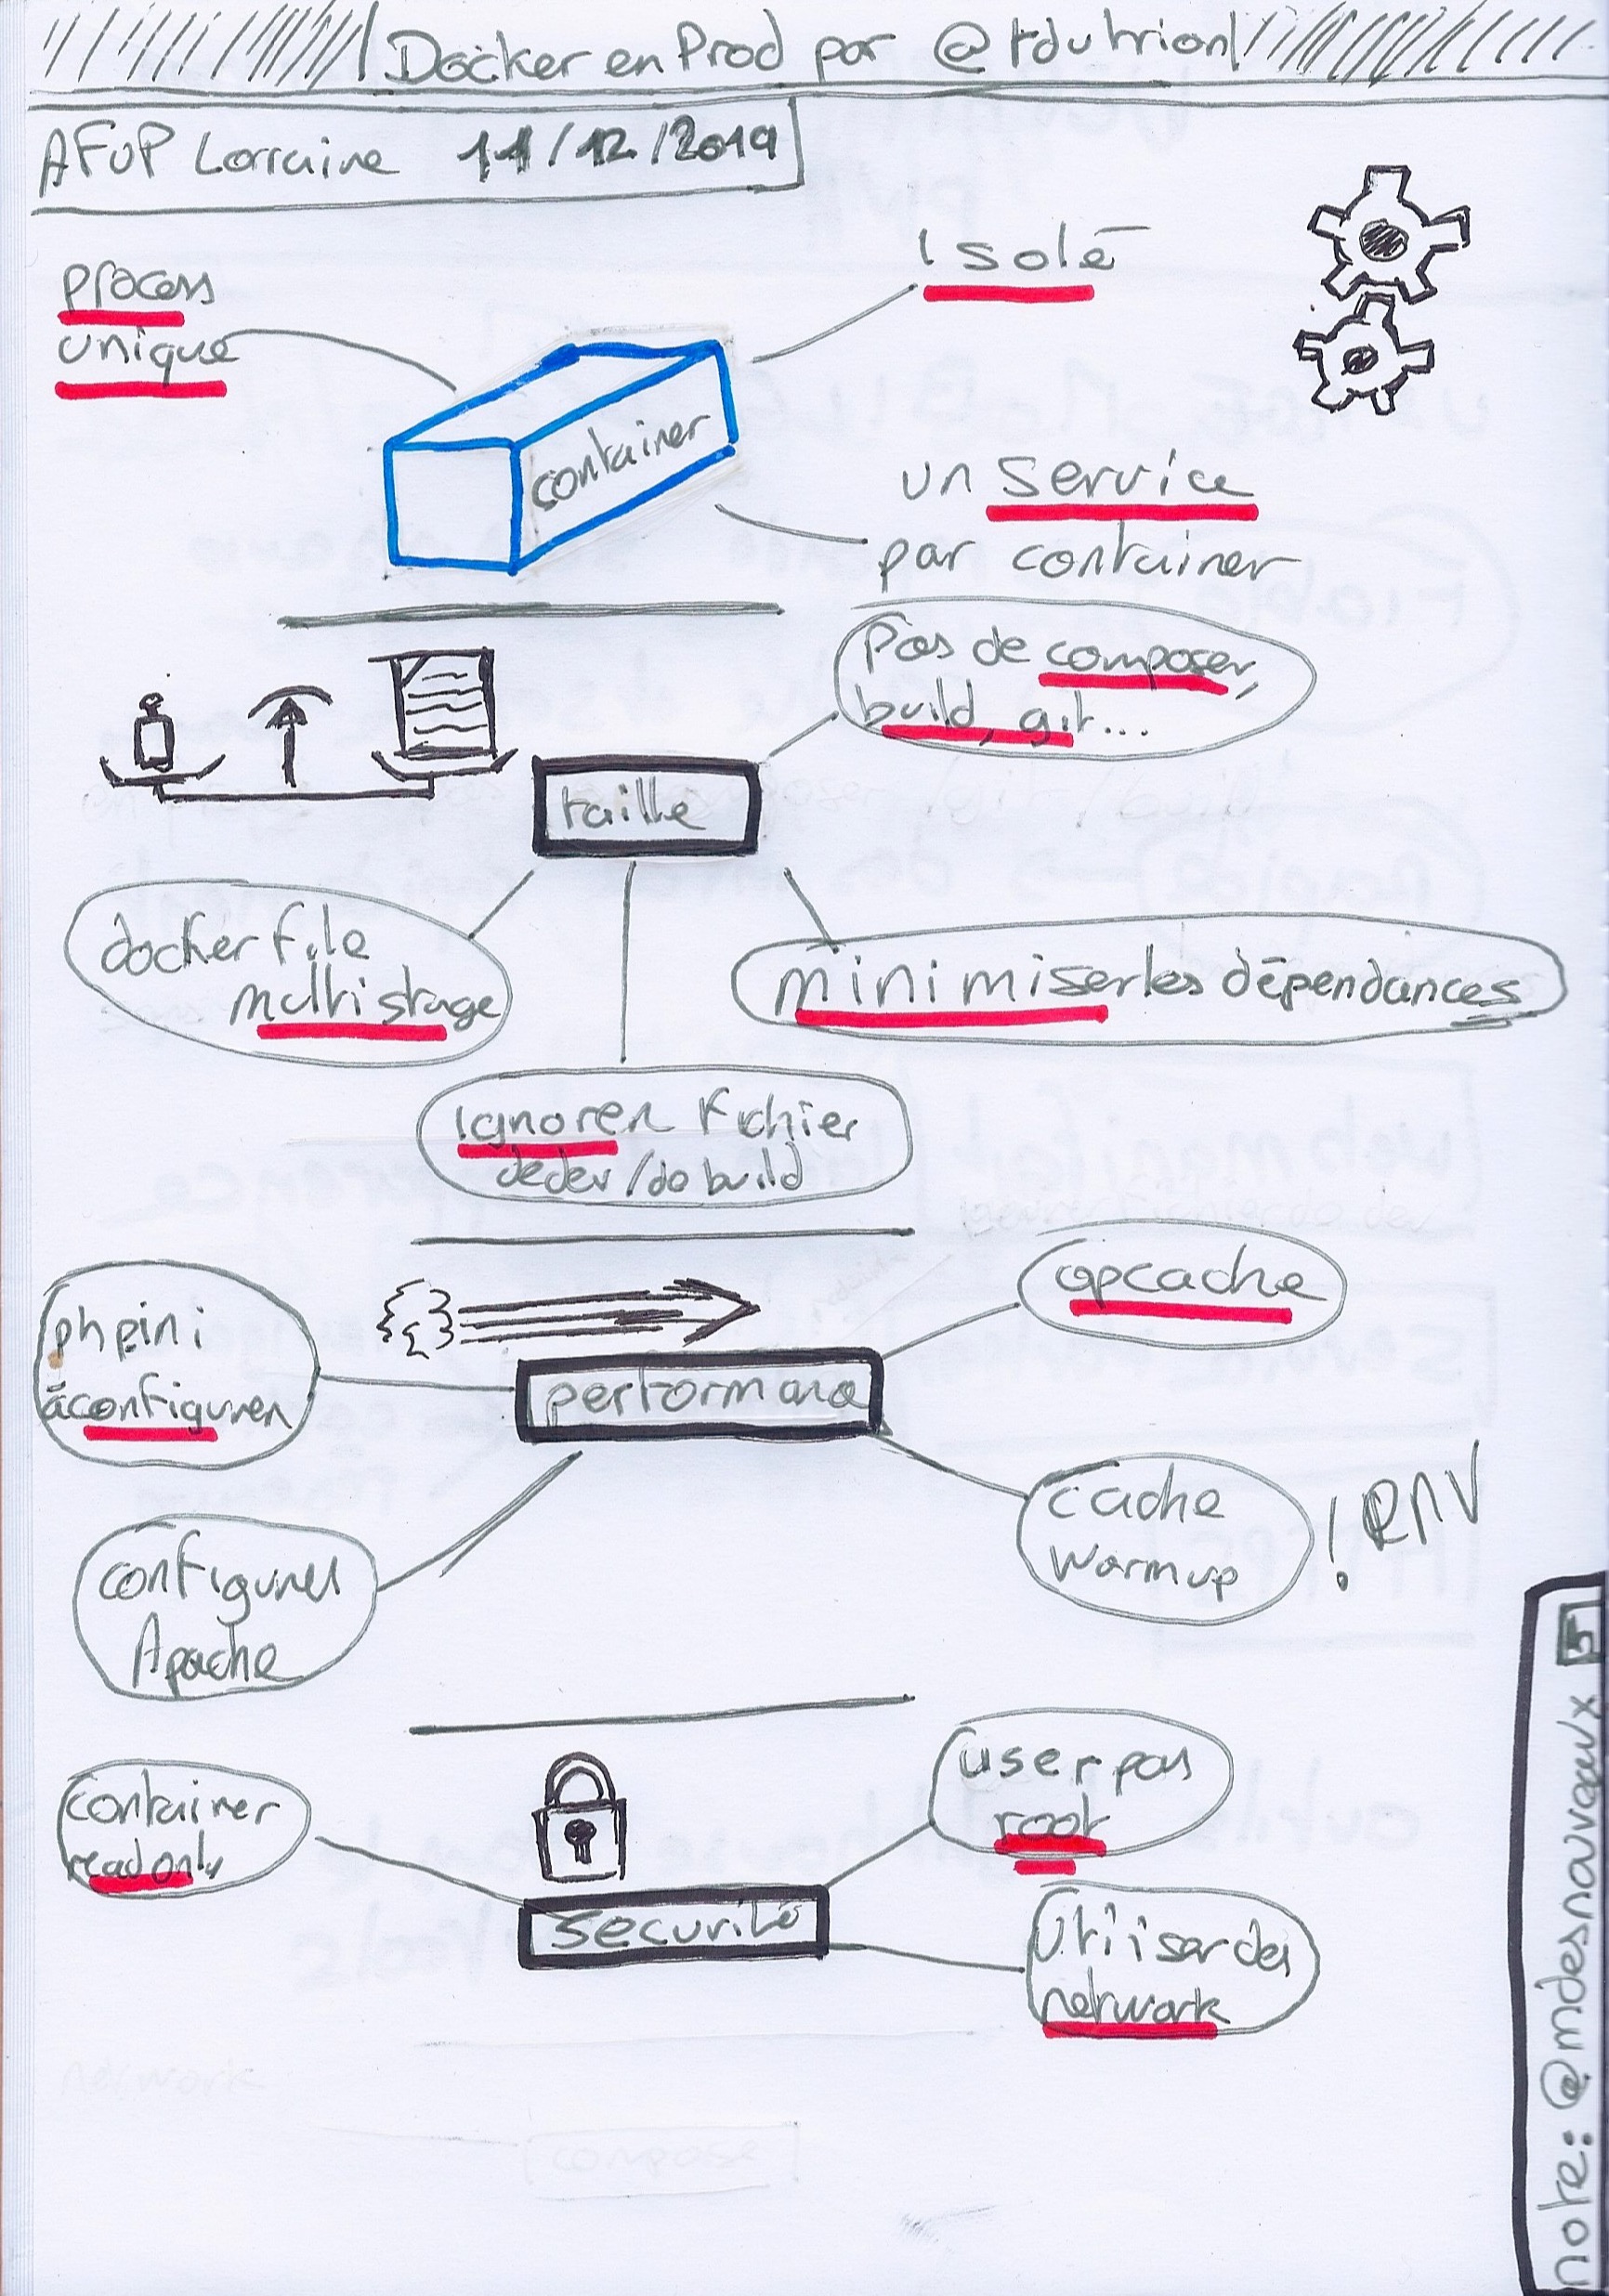 Docker en Prod par @tdutrion
AFUP Lorraine 11/12/2019
process
unique
Isolé
container
un service
par container
Pas de composer,
build, git...
taille
dockerfile
multistage
minimiser les dépendances
ignorer fichier
de dev / de build
opcache
phpini
à configurer
performance
cache
warmup
! ENV
configurer
Apache
user pas
root
container
read only
securité
Utiliser des
network
note: @mdesnouveaux 5
network
compose